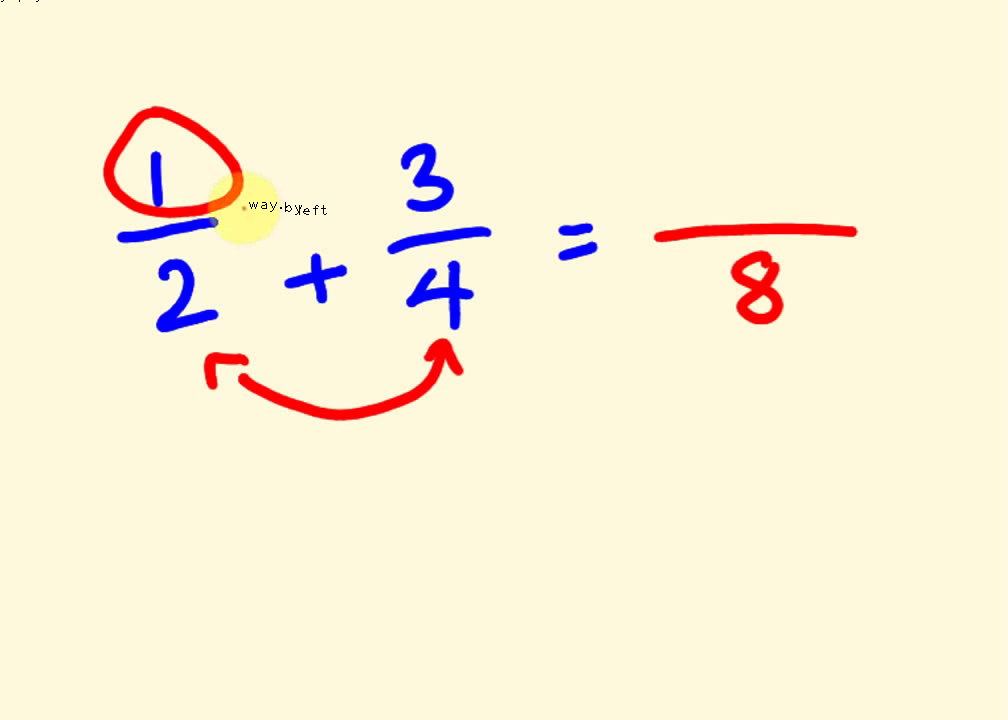 1/2 + 3/4 = /8
way.by
left